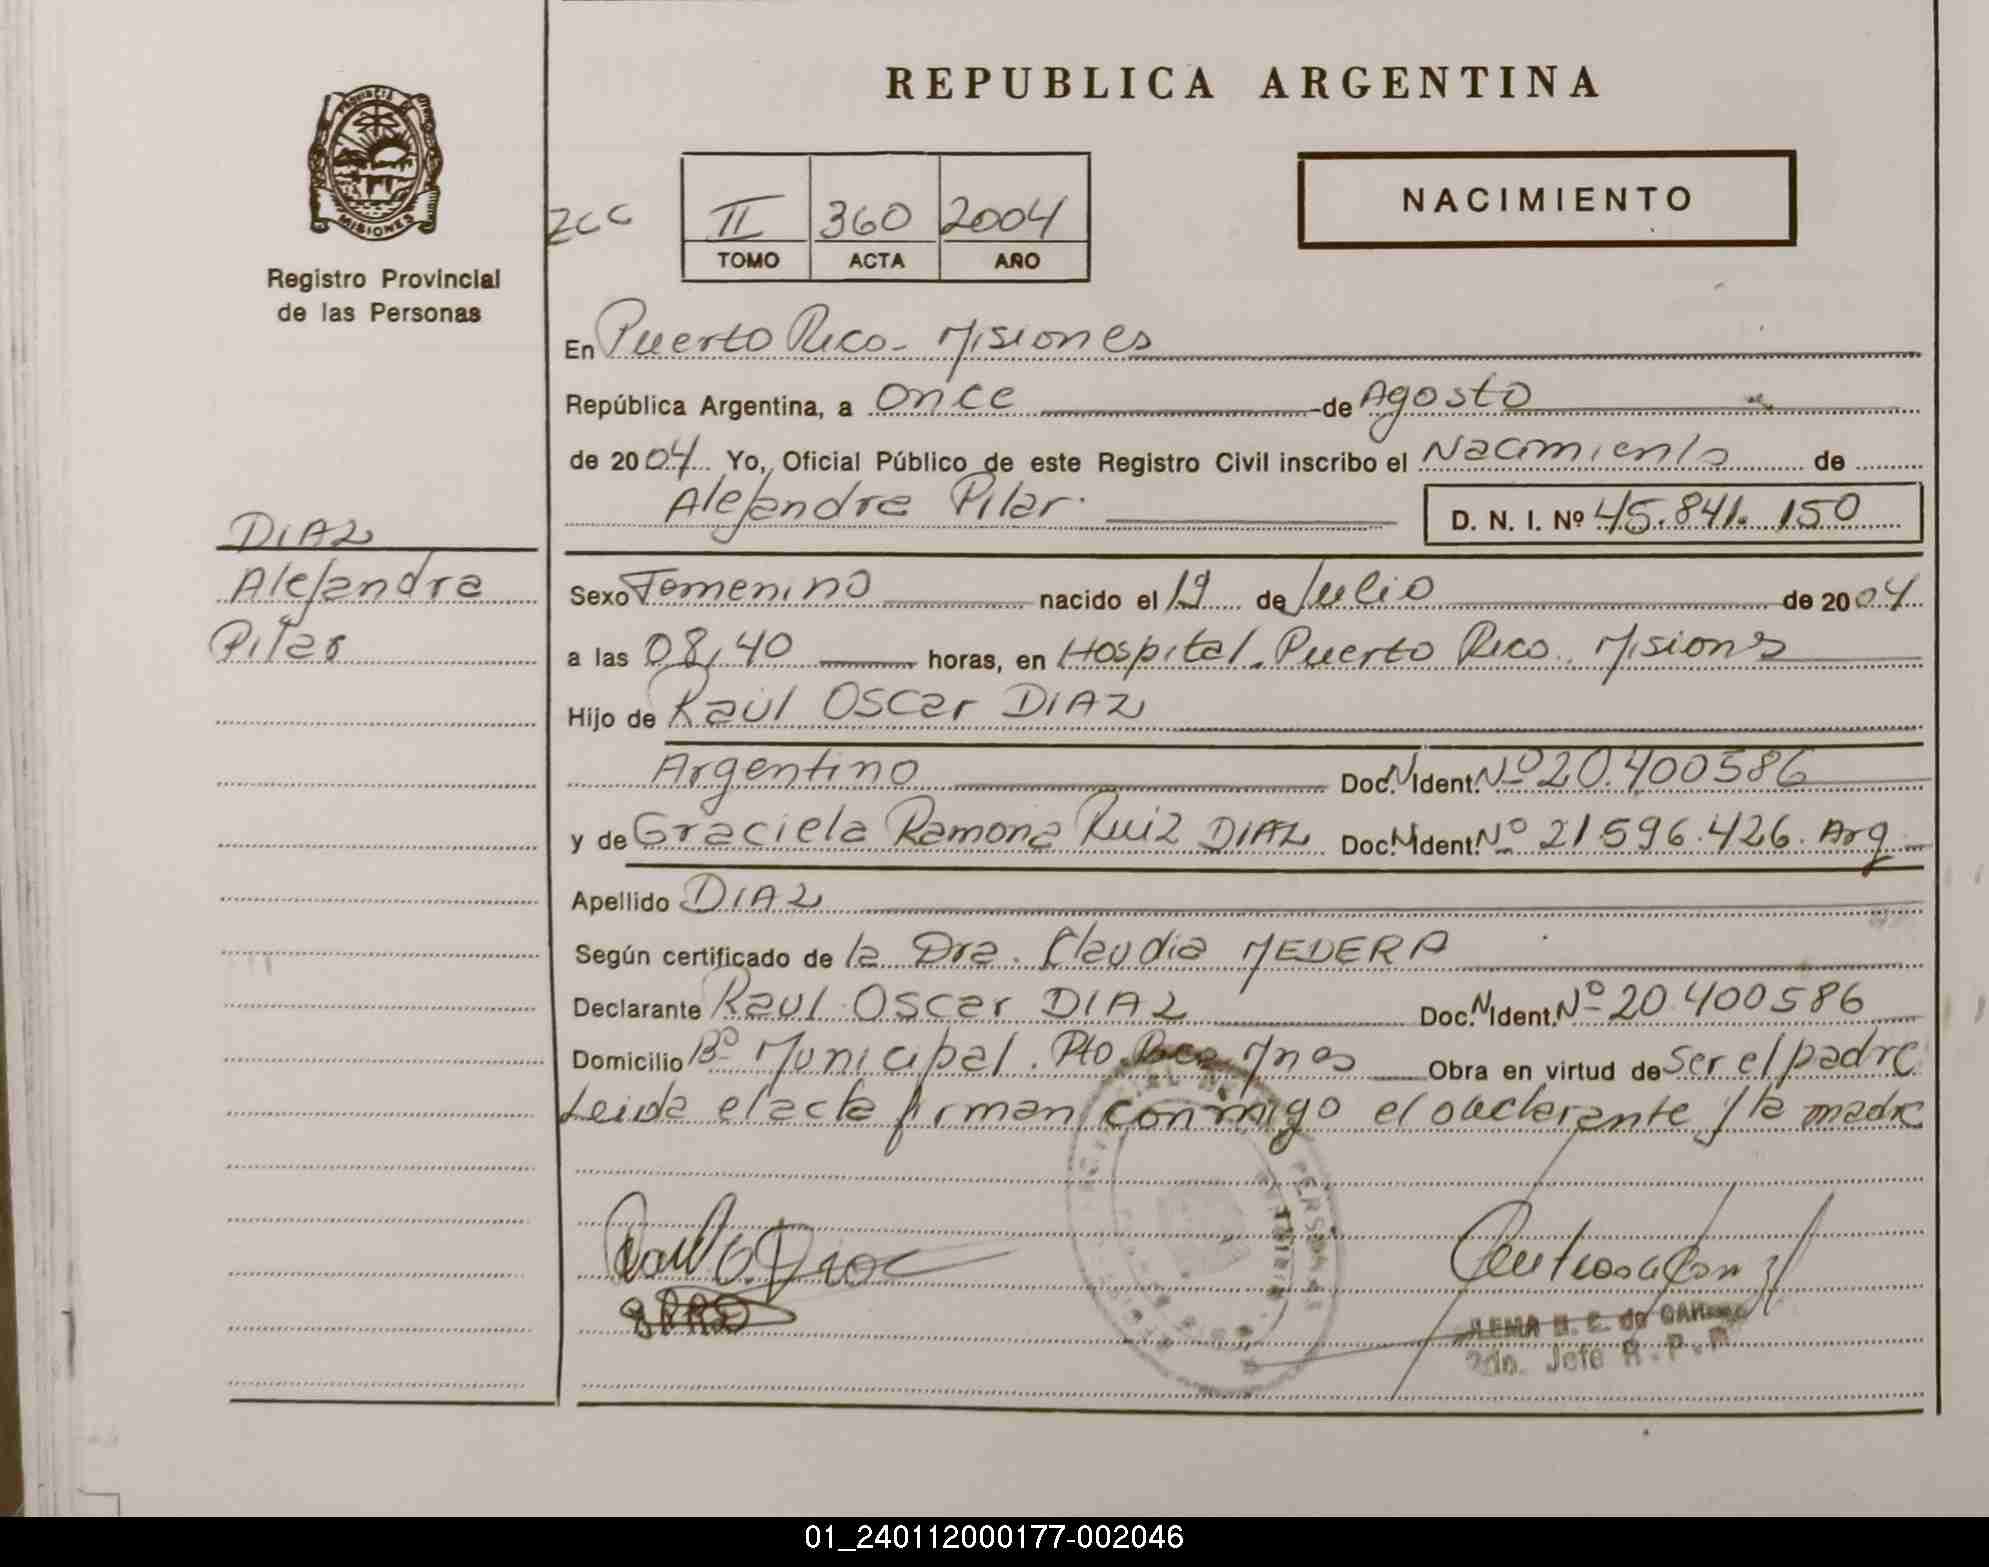 REPUBLICA ARGENTINA
PROVINCIA DE
MISIONES
Registro Provincial
de las Personas
NACIMIENTO
II 360 2004
TOMO ACTA AÑO
En Puerto Rico - Misiones
República Argentina, a once de Agosto
de 2004 Yo, Oficial Público de este Registro Civil inscribo el Nacimiento de
Alejandra Pilar. D. N. I. Nº 45.841.150
DIAZ
Alejandra
Pilar
Sexo Femenino nacido el 19 de Julio de 2004
a las 08,40 horas, en Hospital. Puerto Rico. Misiones
Hijo de Raúl Oscar DIAZ
Argentino Doc. N. Ident. Nº 20.400586
y de Graciela Ramona Ruiz DIAZ Doc. N. Ident. Nº 21596.426. Arg
Apellido DIAZ
Según certificado de la Dra. Claudia MEDERA
Declarante Raul Oscar DIAZ Doc. N. Ident. Nº 20400586
Domicilio Bº Municipal. Pto. Rco Mnes Obra en virtud de ser el padre
Leida el acta firman conmigo el declarante y la madre
2do. Jefe R. P. P
01_240112000177-002046